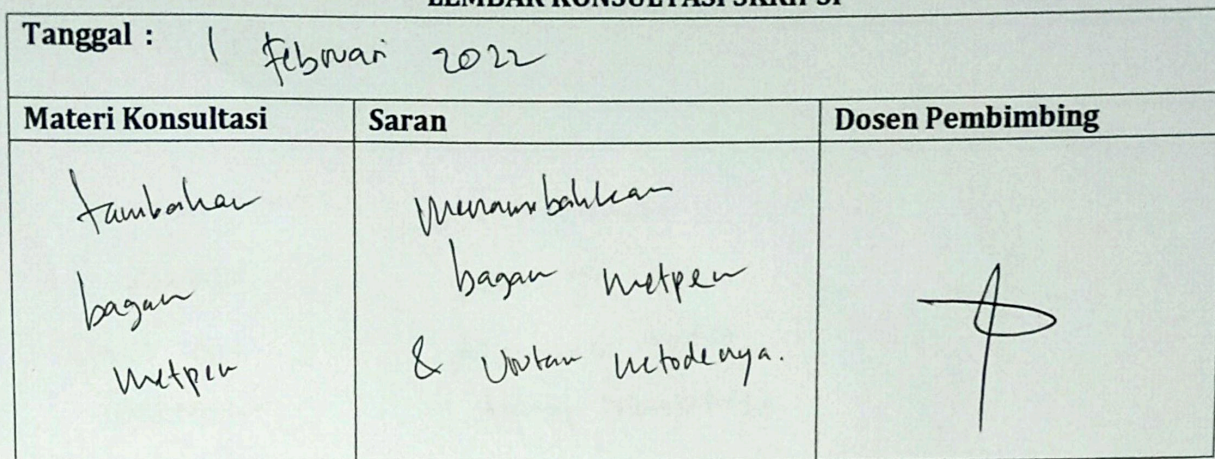 LEMBAR KONSULTASI SKRIPSI
Tanggal : 1 Februari 2022
Materi Konsultasi
Saran
Dosen Pembimbing
tambahan
bagan
metpen
menambahkan
bagan metpen
& urutan metodenya.